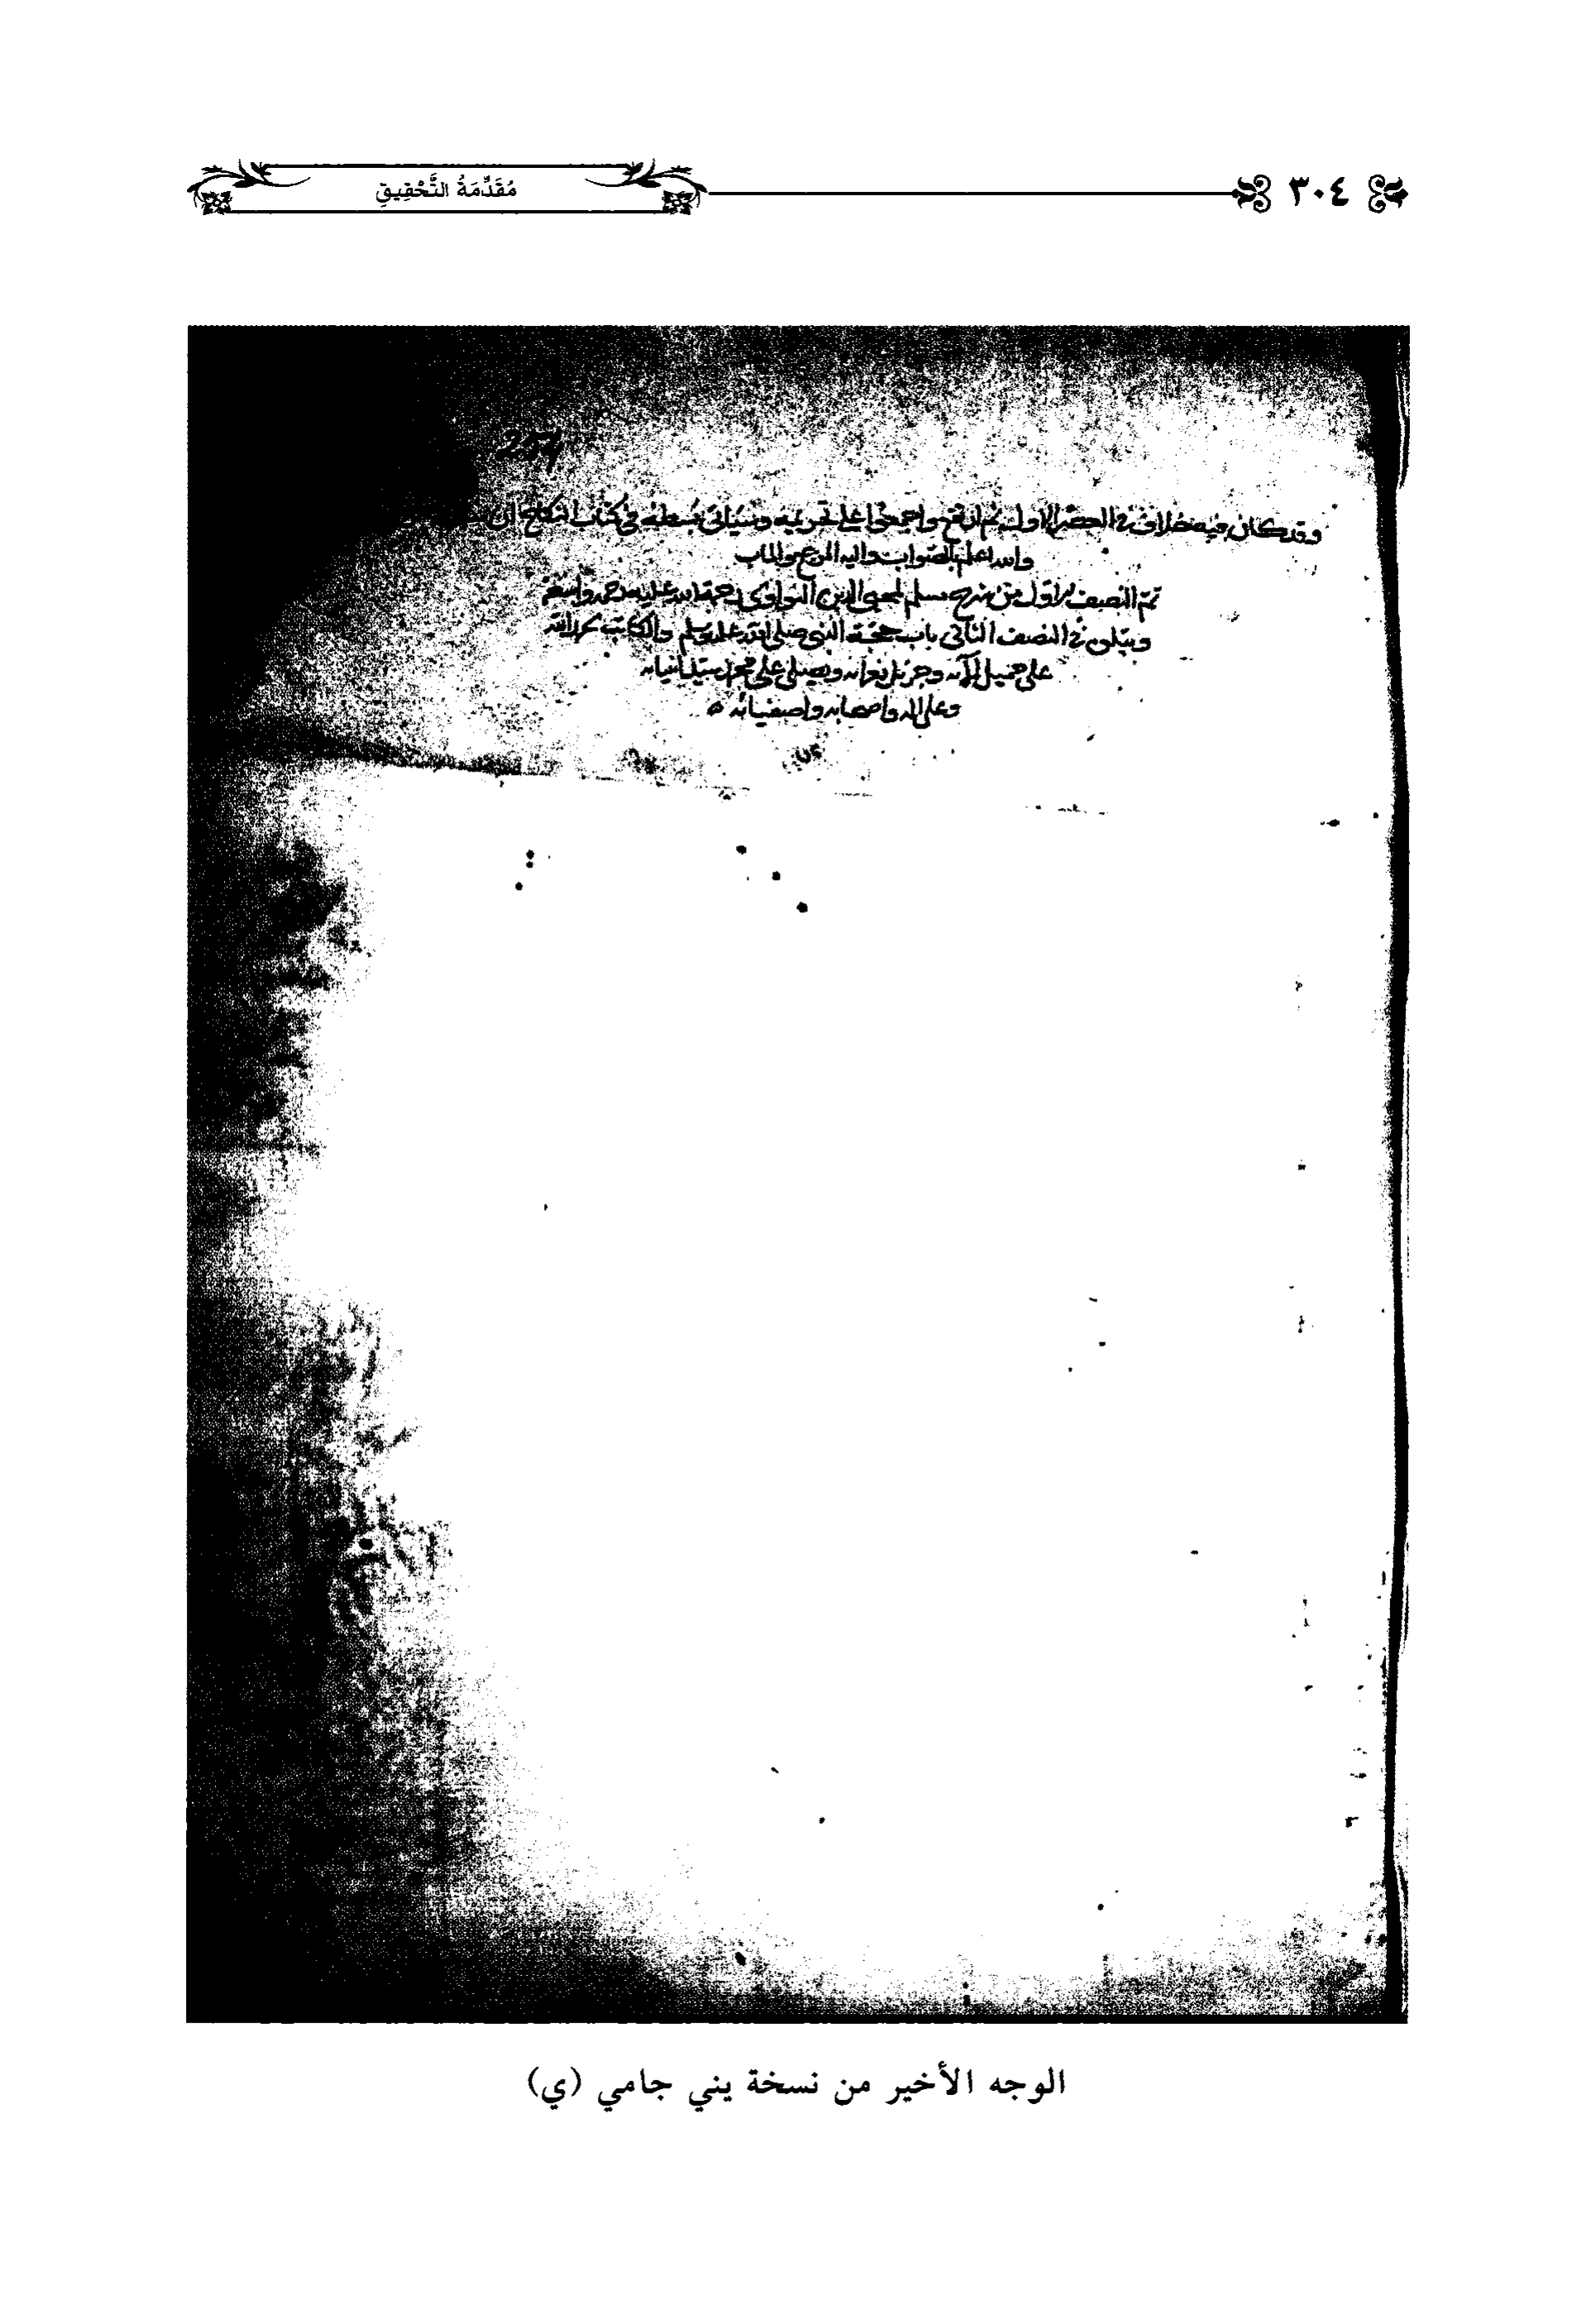 ٣٠٤
مُقَدِّمَةُ التَّحْقِيقِ
254
وقد كان فيه خلاف في العصر الاول ثم ارتفع واجمعوا على تحريمه وسياتي بسطه في كتاب النكاح ان
والله اعلم بالصواب واليه المرجع والماب
تم النصف الاول من شرح مسلم لمحيي الدين النواوي رحمة الله عليه
ويتلوه في النصف الثاني باب حجة النبي صلى الله عليه وسلم والكاتب يحمد الله
على جميل الآئه وجزيل نعمائه ويصلي على محمد سيد انبيائه
وعلى اله واصحابه واصفيائه
الوجه الأخير من نسخة يني جامي (ي)